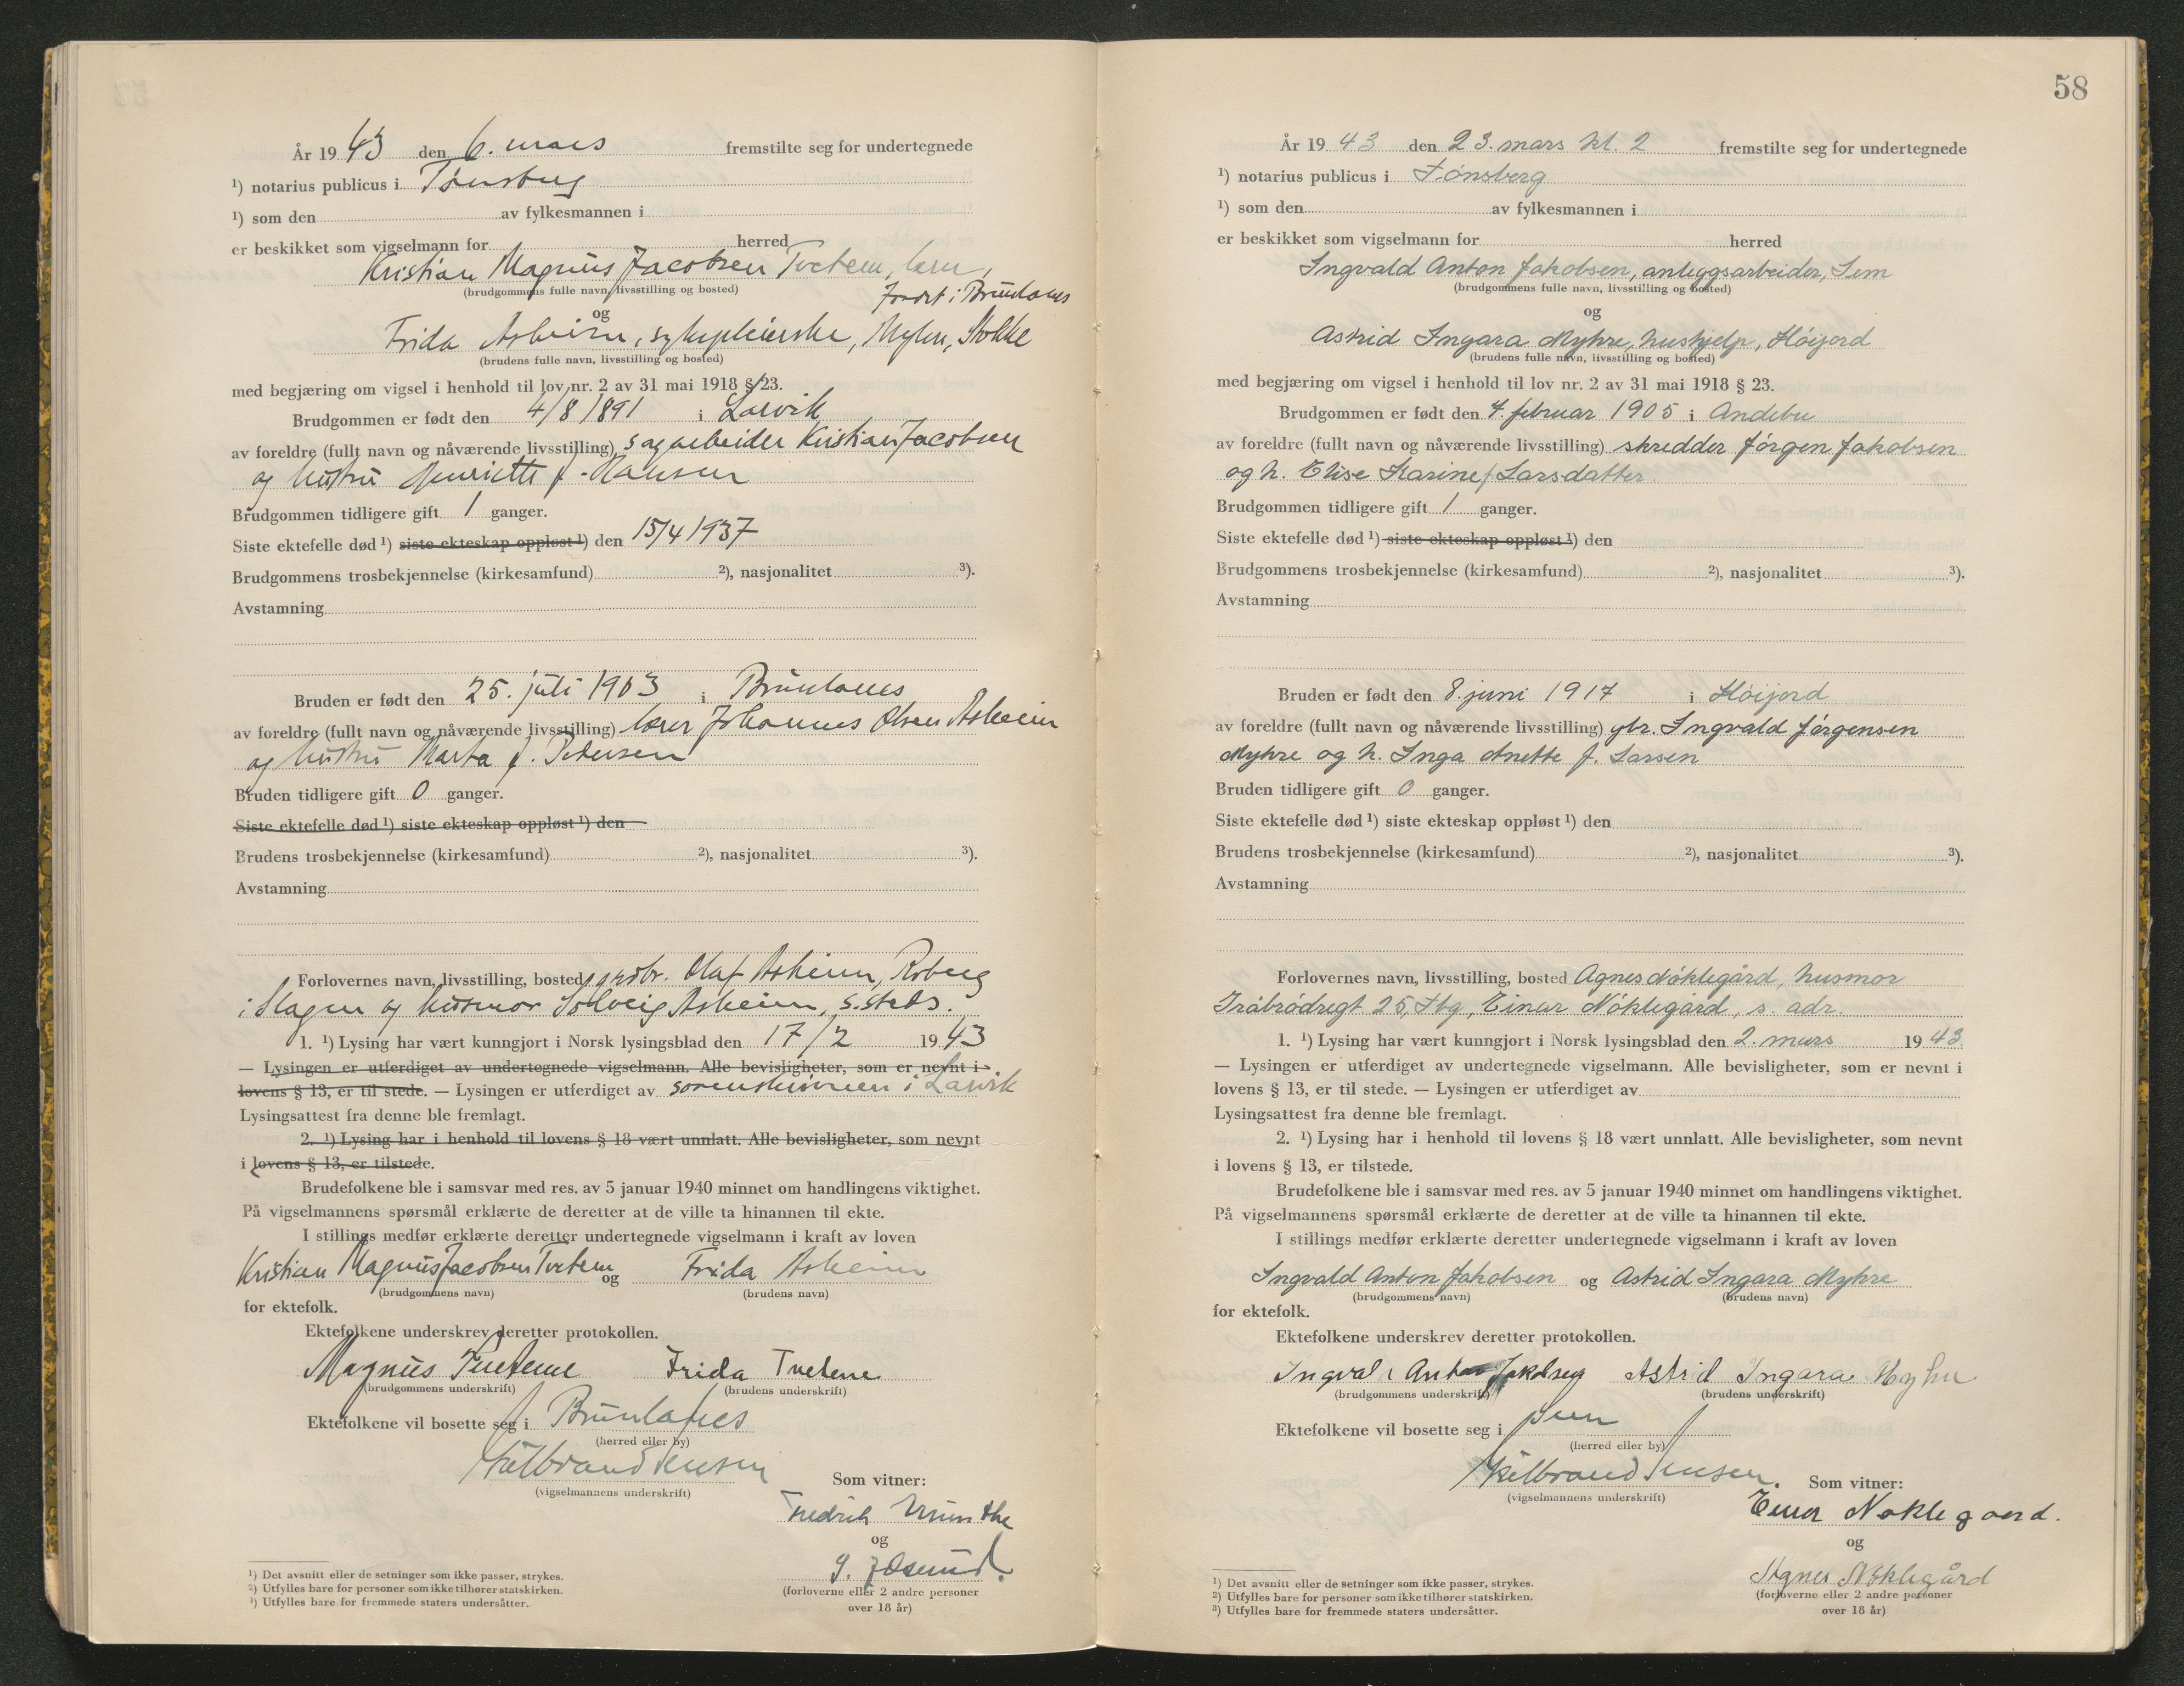 År 1943 den 6. mars fremstilte seg for undertegnede
¹) notarius publicus i Tønsberg
¹) som den av fylkesmannen i
er beskikket som vigselmann for herred
Kristian Magnus Jacobsen Tvetene, lærer,
(brudgommens fulle navn, livsstilling og bosted)
i Brunlanes
og
Frida Askeim, sykepleierske, Myhre, Stokke
(brudens fulle navn, livsstilling og bosted)
med begjæring om vigsel i henhold til lov nr. 2 av 31 mai 1918 § 23.
Brudgommen er født den 4/8 1891 i Larvik
av foreldre (fullt navn og nåværende livsstilling) sagarbeider Kristian Jacobsen
og hustru Henriette f. Hansen
Brudgommen tidligere gift 1 ganger.
Siste ektefelle død ¹) siste ekteskap oppløst ¹) den 15/4 1937
Brudgommens trosbekjennelse (kirkesamfund) ²), nasjonalitet ³).
Avstamning
Bruden er født den 25. juli 1903 i Brunlanes
av foreldre (fullt navn og nåværende livsstilling) lærer Johannes Olsen Askeim
og hustru Marta f. Pedersen
Bruden tidligere gift 0 ganger.
Siste ektefelle død ¹) siste ekteskap oppløst ¹) den
Brudens trosbekjennelse (kirkesamfund) ²), nasjonalitet ³).
Avstamning
Forlovernes navn, livsstilling, bosted gårdbr. Olaf Askeim, Roberg
i Slagen og husmor Solveig Askeim, s.steds.
1. ¹) Lysing har vært kunngjort i Norsk lysingsblad den 17/2 1943
— Lysingen er utferdiget av undertegnede vigselmann. Alle bevisligheter, som er nevnt i
lovens § 13, er til stede. — Lysingen er utferdiget av sorenskriveren i Larvik
Lysingsattest fra denne ble fremlagt.
2. ¹) Lysing har i henhold til lovens § 18 vært unnlatt. Alle bevisligheter, som nevnt
i lovens § 13, er tilstede.
Brudefolkene ble i samsvar med res. av 5 januar 1940 minnet om handlingens viktighet.
På vigselmannens spørsmål erklærte de deretter at de ville ta hinannen til ekte.
I stillings medfør erklærte deretter undertegnede vigselmann i kraft av loven
Kristian Magnus Jacobsen Tvetene og Frida Askeim
(brudgommens navn) (brudens navn)
for ektefolk.
Ektefolkene underskrev deretter protokollen.
Magnus Tvetene Frida Tvetene
(brudgommens underskrift) (brudens underskrift)
Ektefolkene vil bosette seg i Brunlanes
(herred eller by)
Hilbrand Jensen
(vigselmannens underskrift)
Som vitner:
Fredrik Munthe
og
(forloverne eller 2 andre personer
over 18 år)
¹) Det avsnitt eller de setninger som ikke passer, strykes.
²) Utfylles bare for personer som ikke tilhører statskirken.
³) Utfylles bare for fremmede staters undersåtter.
58
År 1943 den 23. mars kl. 2 fremstilte seg for undertegnede
¹) notarius publicus i Tønsberg
¹) som den av fylkesmannen i
er beskikket som vigselmann for herred
Ingvald Anton Jakobsen, anleggsarbeider, Sem
(brudgommens fulle navn, livsstilling og bosted)
og
Astrid Ingara Myhre, hushjelp, Høijord
(brudens fulle navn, livsstilling og bosted)
med begjæring om vigsel i henhold til lov nr. 2 av 31 mai 1918 § 23.
Brudgommen er født den 4. februar 1905 i Andebu
av foreldre (fullt navn og nåværende livsstilling) skredder Jørgen Jakobsen
og h. Elise Karine f. Larsdatter.
Brudgommen tidligere gift 1 ganger.
Siste ektefelle død ¹) siste ekteskap oppløst ¹) den
Brudgommens trosbekjennelse (kirkesamfund) ²), nasjonalitet ³).
Avstamning
Bruden er født den 8. juni 1917 i Høijord
av foreldre (fullt navn og nåværende livsstilling) gbr. Ingvald Jørgensen
Myhre og h. Inga Anette f. Larsen
Bruden tidligere gift 0 ganger.
Siste ektefelle død ¹) siste ekteskap oppløst ¹) den
Brudens trosbekjennelse (kirkesamfund) ²), nasjonalitet ³).
Avstamning
Forlovernes navn, livsstilling, bosted Agnes Nøklegård, husmor
Tråbrødregt 25, Tbg, Einar Nøklegård, s. adr.
1. ¹) Lysing har vært kunngjort i Norsk lysingsblad den 2. mars 1943.
— Lysingen er utferdiget av undertegnede vigselmann. Alle bevisligheter, som er nevnt i
lovens § 13, er til stede. — Lysingen er utferdiget av
Lysingsattest fra denne ble fremlagt.
2. ¹) Lysing har i henhold til lovens § 18 vært unnlatt. Alle bevisligheter, som nevnt
i lovens § 13, er tilstede.
Brudefolkene ble i samsvar med res. av 5 januar 1940 minnet om handlingens viktighet.
På vigselmannens spørsmål erklærte de deretter at de ville ta hinannen til ekte.
I stillings medfør erklærte deretter undertegnede vigselmann i kraft av loven
Ingvald Anton Jakobsen og Astrid Ingara Myhre
(brudgommens navn) (brudens navn)
for ektefolk.
Ektefolkene underskrev deretter protokollen.
Ingvald Anton Jakobsen Astrid Ingara Myhre
(brudgommens underskrift) (brudens underskrift)
Ektefolkene vil bosette seg i Sem
(herred eller by)
Hilbrand Jensen
(vigselmannens underskrift)
Som vitner:
Einar Nøklegaard.
og
Agnes Nøklegård
(forloverne eller 2 andre personer
over 18 år)
¹) Det avsnitt eller de setninger som ikke passer, strykes.
²) Utfylles bare for personer som ikke tilhører statskirken.
³) Utfylles bare for fremmede staters undersåtter.